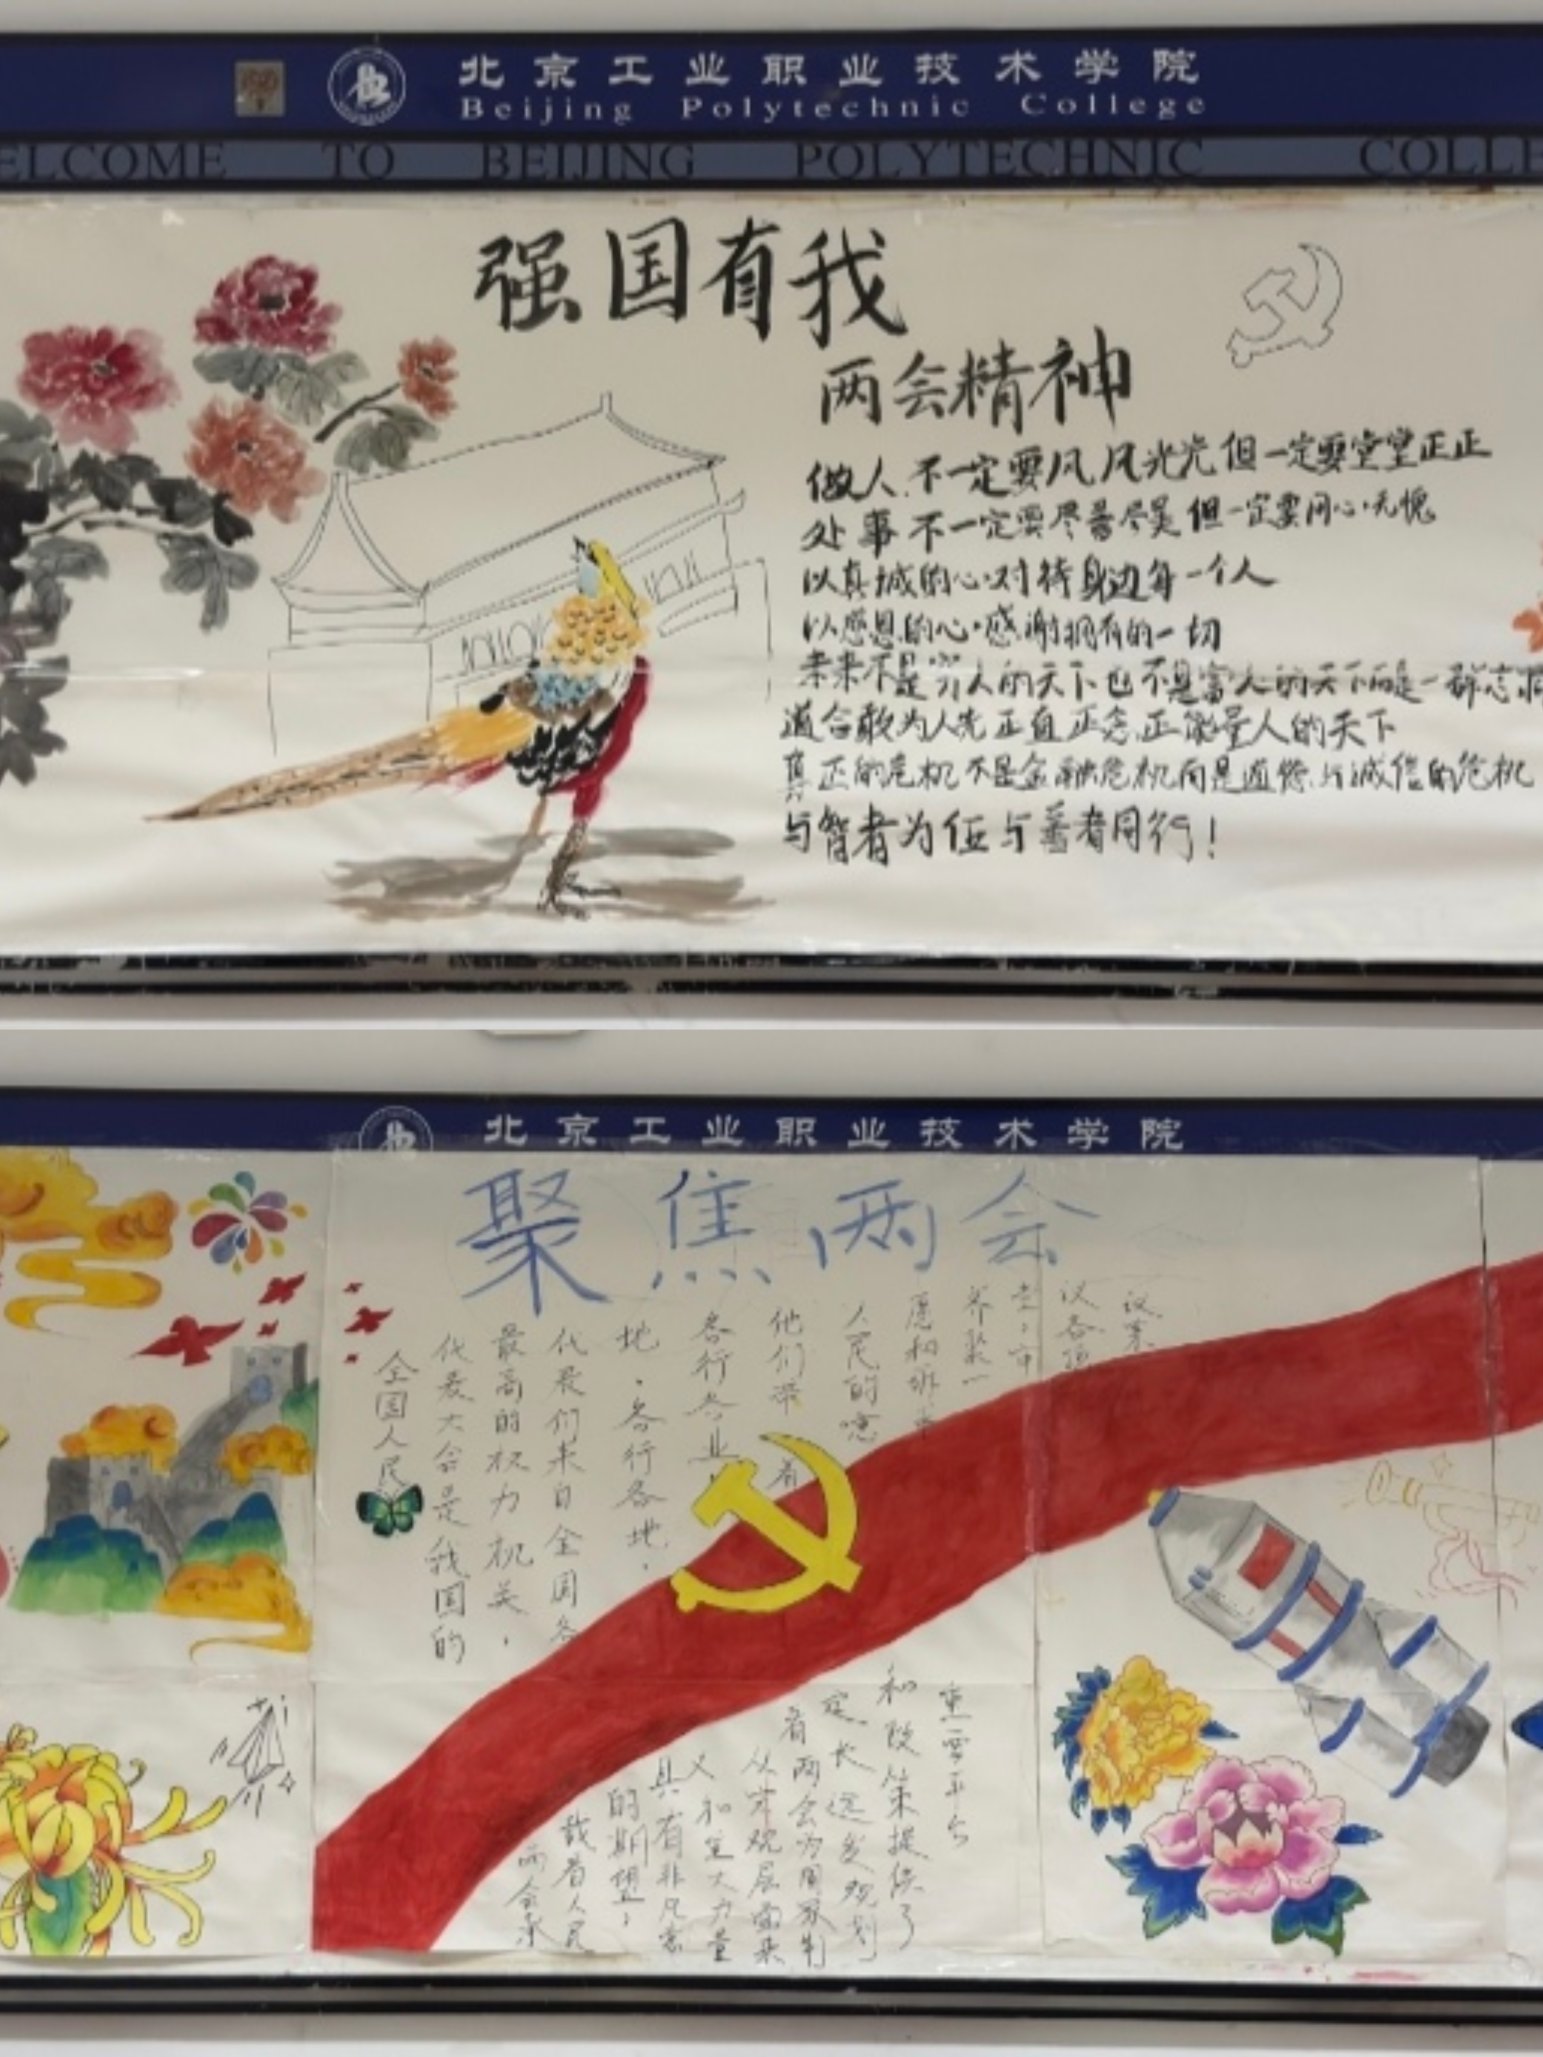 北京工业职业技术学院
Beijing Polytechnic College
ELCOME TO BEIJING POLYTECHNIC COLLE
强国有我
两会精神
做人不一定要风风光光但一定要堂堂正正
处事不一定要尽善尽美但一定要问心无愧
以真诚的心对待身边每一个人
以感恩的心感谢拥有的一切
未来不是穷人的天下也不是富人的天下而是一群志同
道合敢为人先正直正念正能量人的天下
真正的危机不是金融危机而是道德与诚信的危机
与智者为伍与善者同行!
北京工业职业技术学院
聚焦两会
全国人民
代表大会是我国的
最高的权力机关,
代表们来自全国各
地,各行各地,
各行各业
他们带着
人民的
愿和
两会承
载着人民
的期望,
具有非凡意
义和重大力量
从宏观层面来
看两会为国家制
定长远发规划
和政策提供了
重要平台